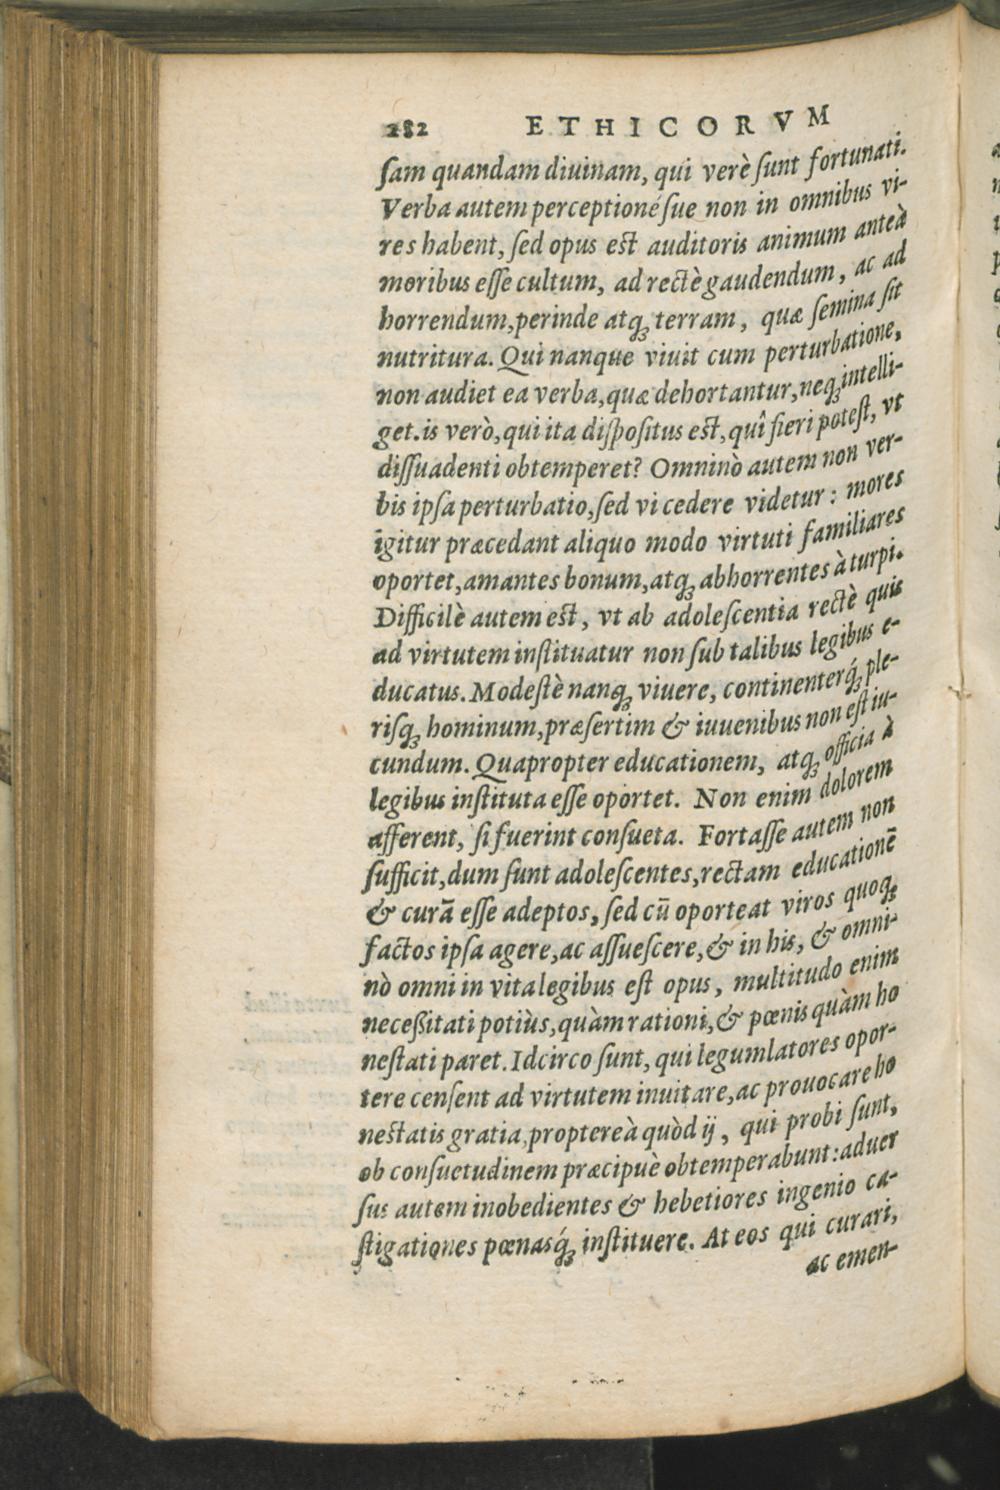 282 ETHICORVM
ſam quandam diuinam, qui verè ſunt fortunati.
Verba autem perceptionéſue non in omnibus vi-
res habent, ſed opus est auditoris animum anteà
moribus eſſe cultum, ad rectè gaudendum, ac ad
horrendum, perinde atq; terram, quæ ſemina ſit
nutritura. Qui nanque viuit cum perturbatione,
non audiet ea verba, quæ dehortantur, neq; intelli-
get. is verò, qui ita diſpoſitus est, quî fieri poteſt, vt
diſſuadenti obtemperet? Omninò autem non ver-
bis ipſa perturbatio, ſed vi cedere videtur: mores
igitur præcedant aliquo modo virtuti familiares
oportet, amantes bonum, atq; abhorrentes à turpi.
Difficilè autem est, vt ab adoleſcentia rectè quis
ad virtutem inſtituatur non ſub talibus legibus e-
ducatus. Modeſtè nanq; viuere, continenterq́; ple-
riſq; hominum, præſertim & iuuenibus non eſt iu-
cundum. Quapropter educationem, atq; officia à
legibus inſtituta eſſe oportet. Non enim dolorem
afferent, ſi fuerint conſueta. Fortaſſe autem non
ſufficit, dum ſunt adoleſcentes, rectam educationē
& curā eſſe adeptos, ſed cū oporteat viros quoq;
factos ipſa agere, ac aſſueſcere, & in his, & omni-
nò omni in vita legibus eſt opus, multitudo enim
neceßitati potiùs, quàm rationi, & pœnis quàm ho
neſtati paret. Idcirco ſunt, qui legumlatores opor-
tere cenſent ad virtutem inuitare, ac prouocare ho
neſtatis gratia, proptereà quòd ij, qui probi ſunt,
ob conſuetudinem præcipuè obtemperabunt: aduer
ſus autem inobedientes & hebetiores ingenio ca-
ſtigationes pœnasq́; inſtituere. At eos qui curari,
ac emen-